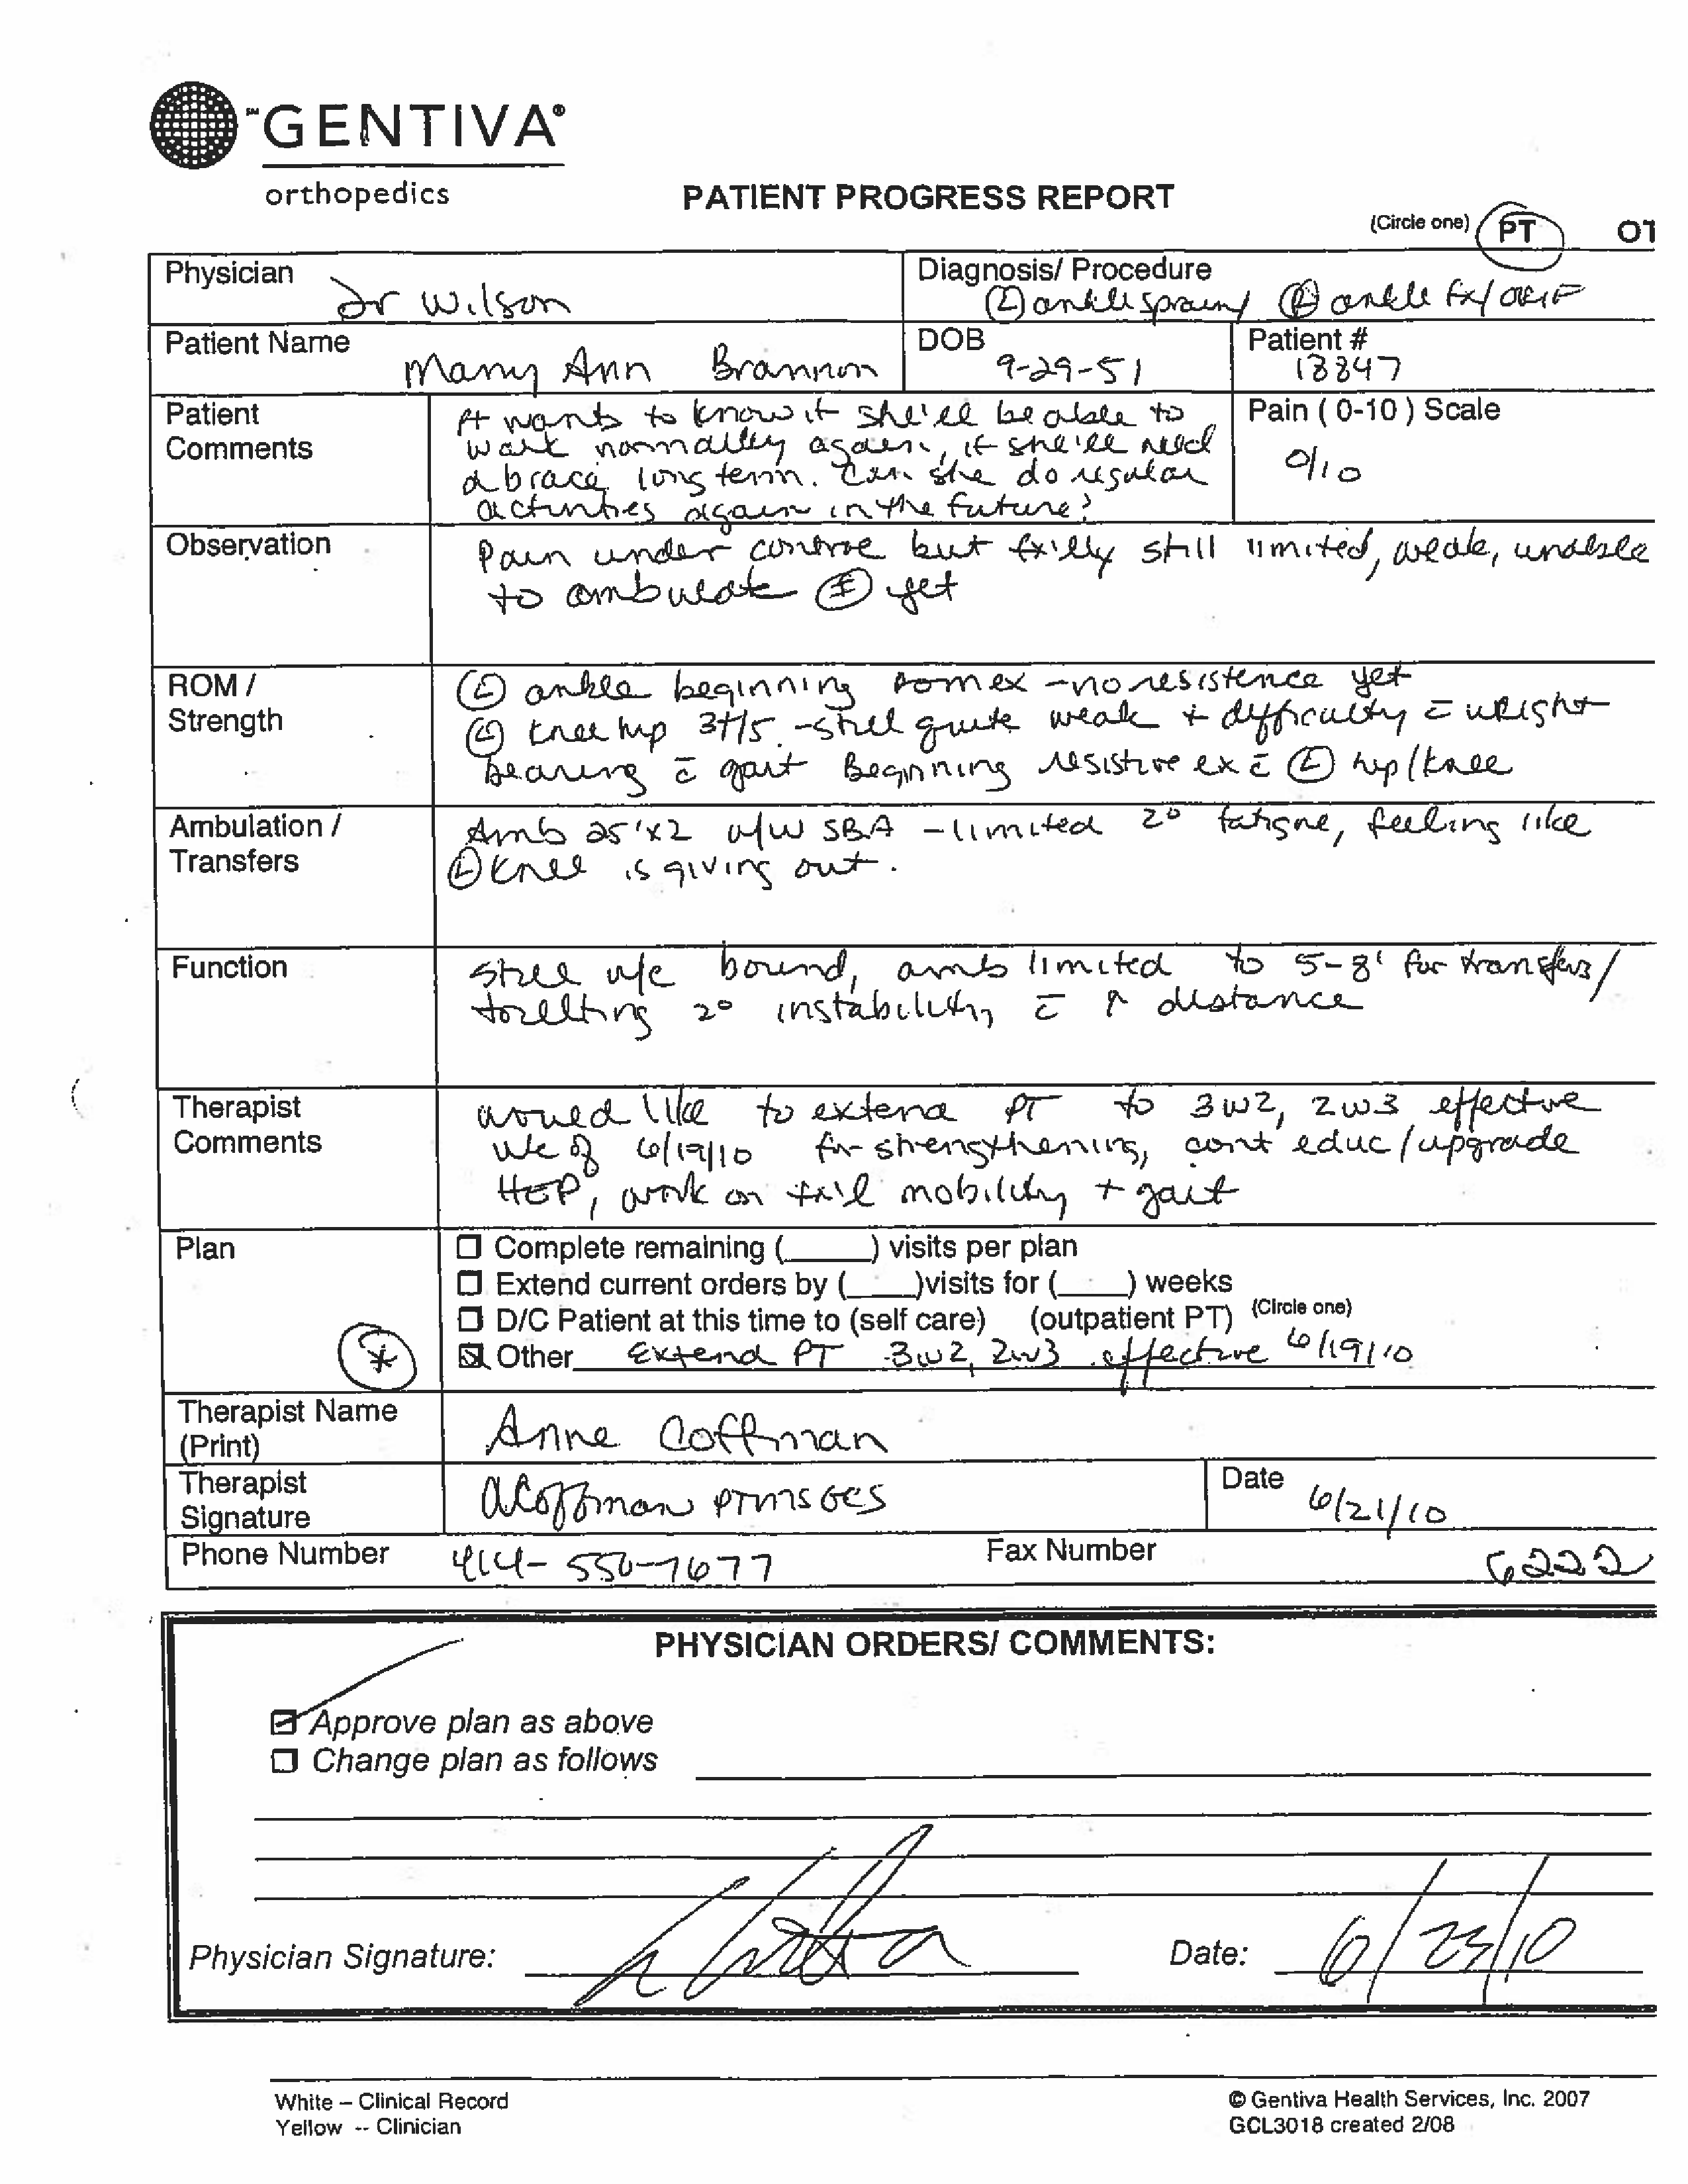 ℠GENTIVA®
orthopedics
PATIENT PROGRESS REPORT
(Circle one) PT OT
Physician Dr Wilson
Diagnosis/ Procedure Ⓛ ankle sprain/ Ⓡ ankle fx/ORIF
Patient Name Mary Ann Brannon
DOB 9-29-51
Patient # 18847
Patient Comments
Pt wants to know if she'll be able to
walk normally again, if she'll need
a brace long term. Can she do regular
activities again in the future?
Pain ( 0-10 ) Scale
0/10
Observation
Pain under control but still limited, weak, unable
to ambulate Ⓘ yet
ROM /
Strength
Ⓛ ankle beginning ROM ex - no resistence yet
Ⓛ knee hip 3+/5 - still quite weak + difficulty c̄ weight
bearing c̄ gait Beginning resistive ex c̄ Ⓛ hip/knee
Ambulation /
Transfers
Amb 25'x2 w/w SBA - limited 2° fatigue, feeling like
Ⓛ knee is giving out.
Function
Still w/c bound, amb limited to 5-8' for transfers/
toileting 2° instability c̄ ↑ distance
Therapist
Comments
would like to extend PT to 3w2, 2w3 effective
wk of 6/19/10 for strengthening, cont educ/upgrade
HEP, work on mobility + gait
Plan
☐ Complete remaining (_____) visits per plan
☐ Extend current orders by (____)visits for (____) weeks
☐ D/C Patient at this time to (self care) (outpatient PT) (Circle one)
* ☒ Other Extend PT 3w2, 2w3 effective 6/19/10
Therapist Name
(Print)
Anne Coffman
Therapist
Signature
ACoffman PTMS GCS
Date 6/21/10
Phone Number 414-550-7677
Fax Number 6222
PHYSICIAN ORDERS/ COMMENTS:
☑ Approve plan as above
☐ Change plan as follows
Physician Signature:
Date: 6/23/10
White – Clinical Record
Yellow -- Clinician
© Gentiva Health Services, Inc. 2007
GCL3018 created 2/08